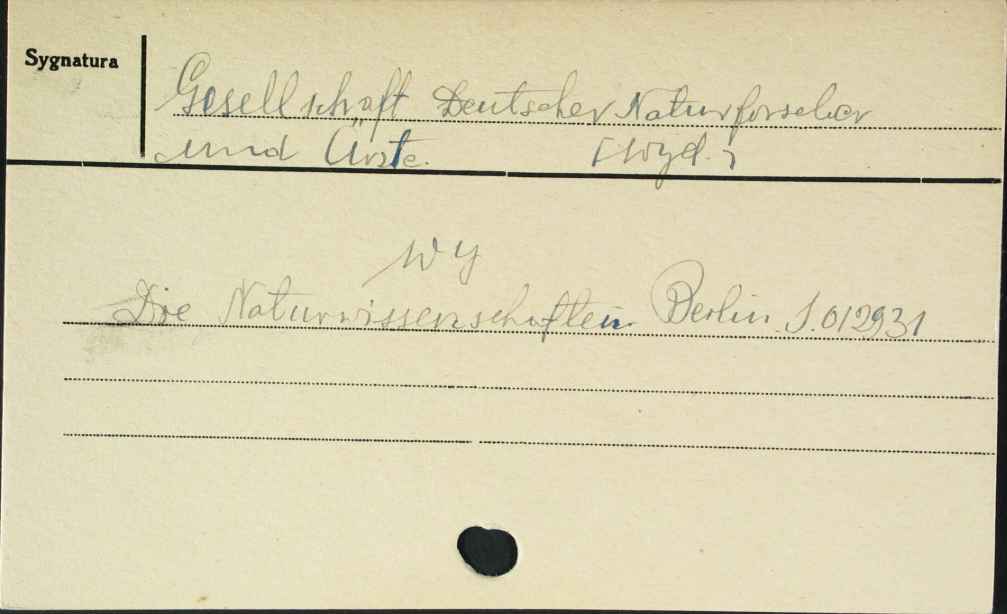 Sygnatura
Gesellschaft Deutscher Naturforscher
und Ärzte. [wyd.]
w y
Die Naturwissenschaften. Berlin. S.012931